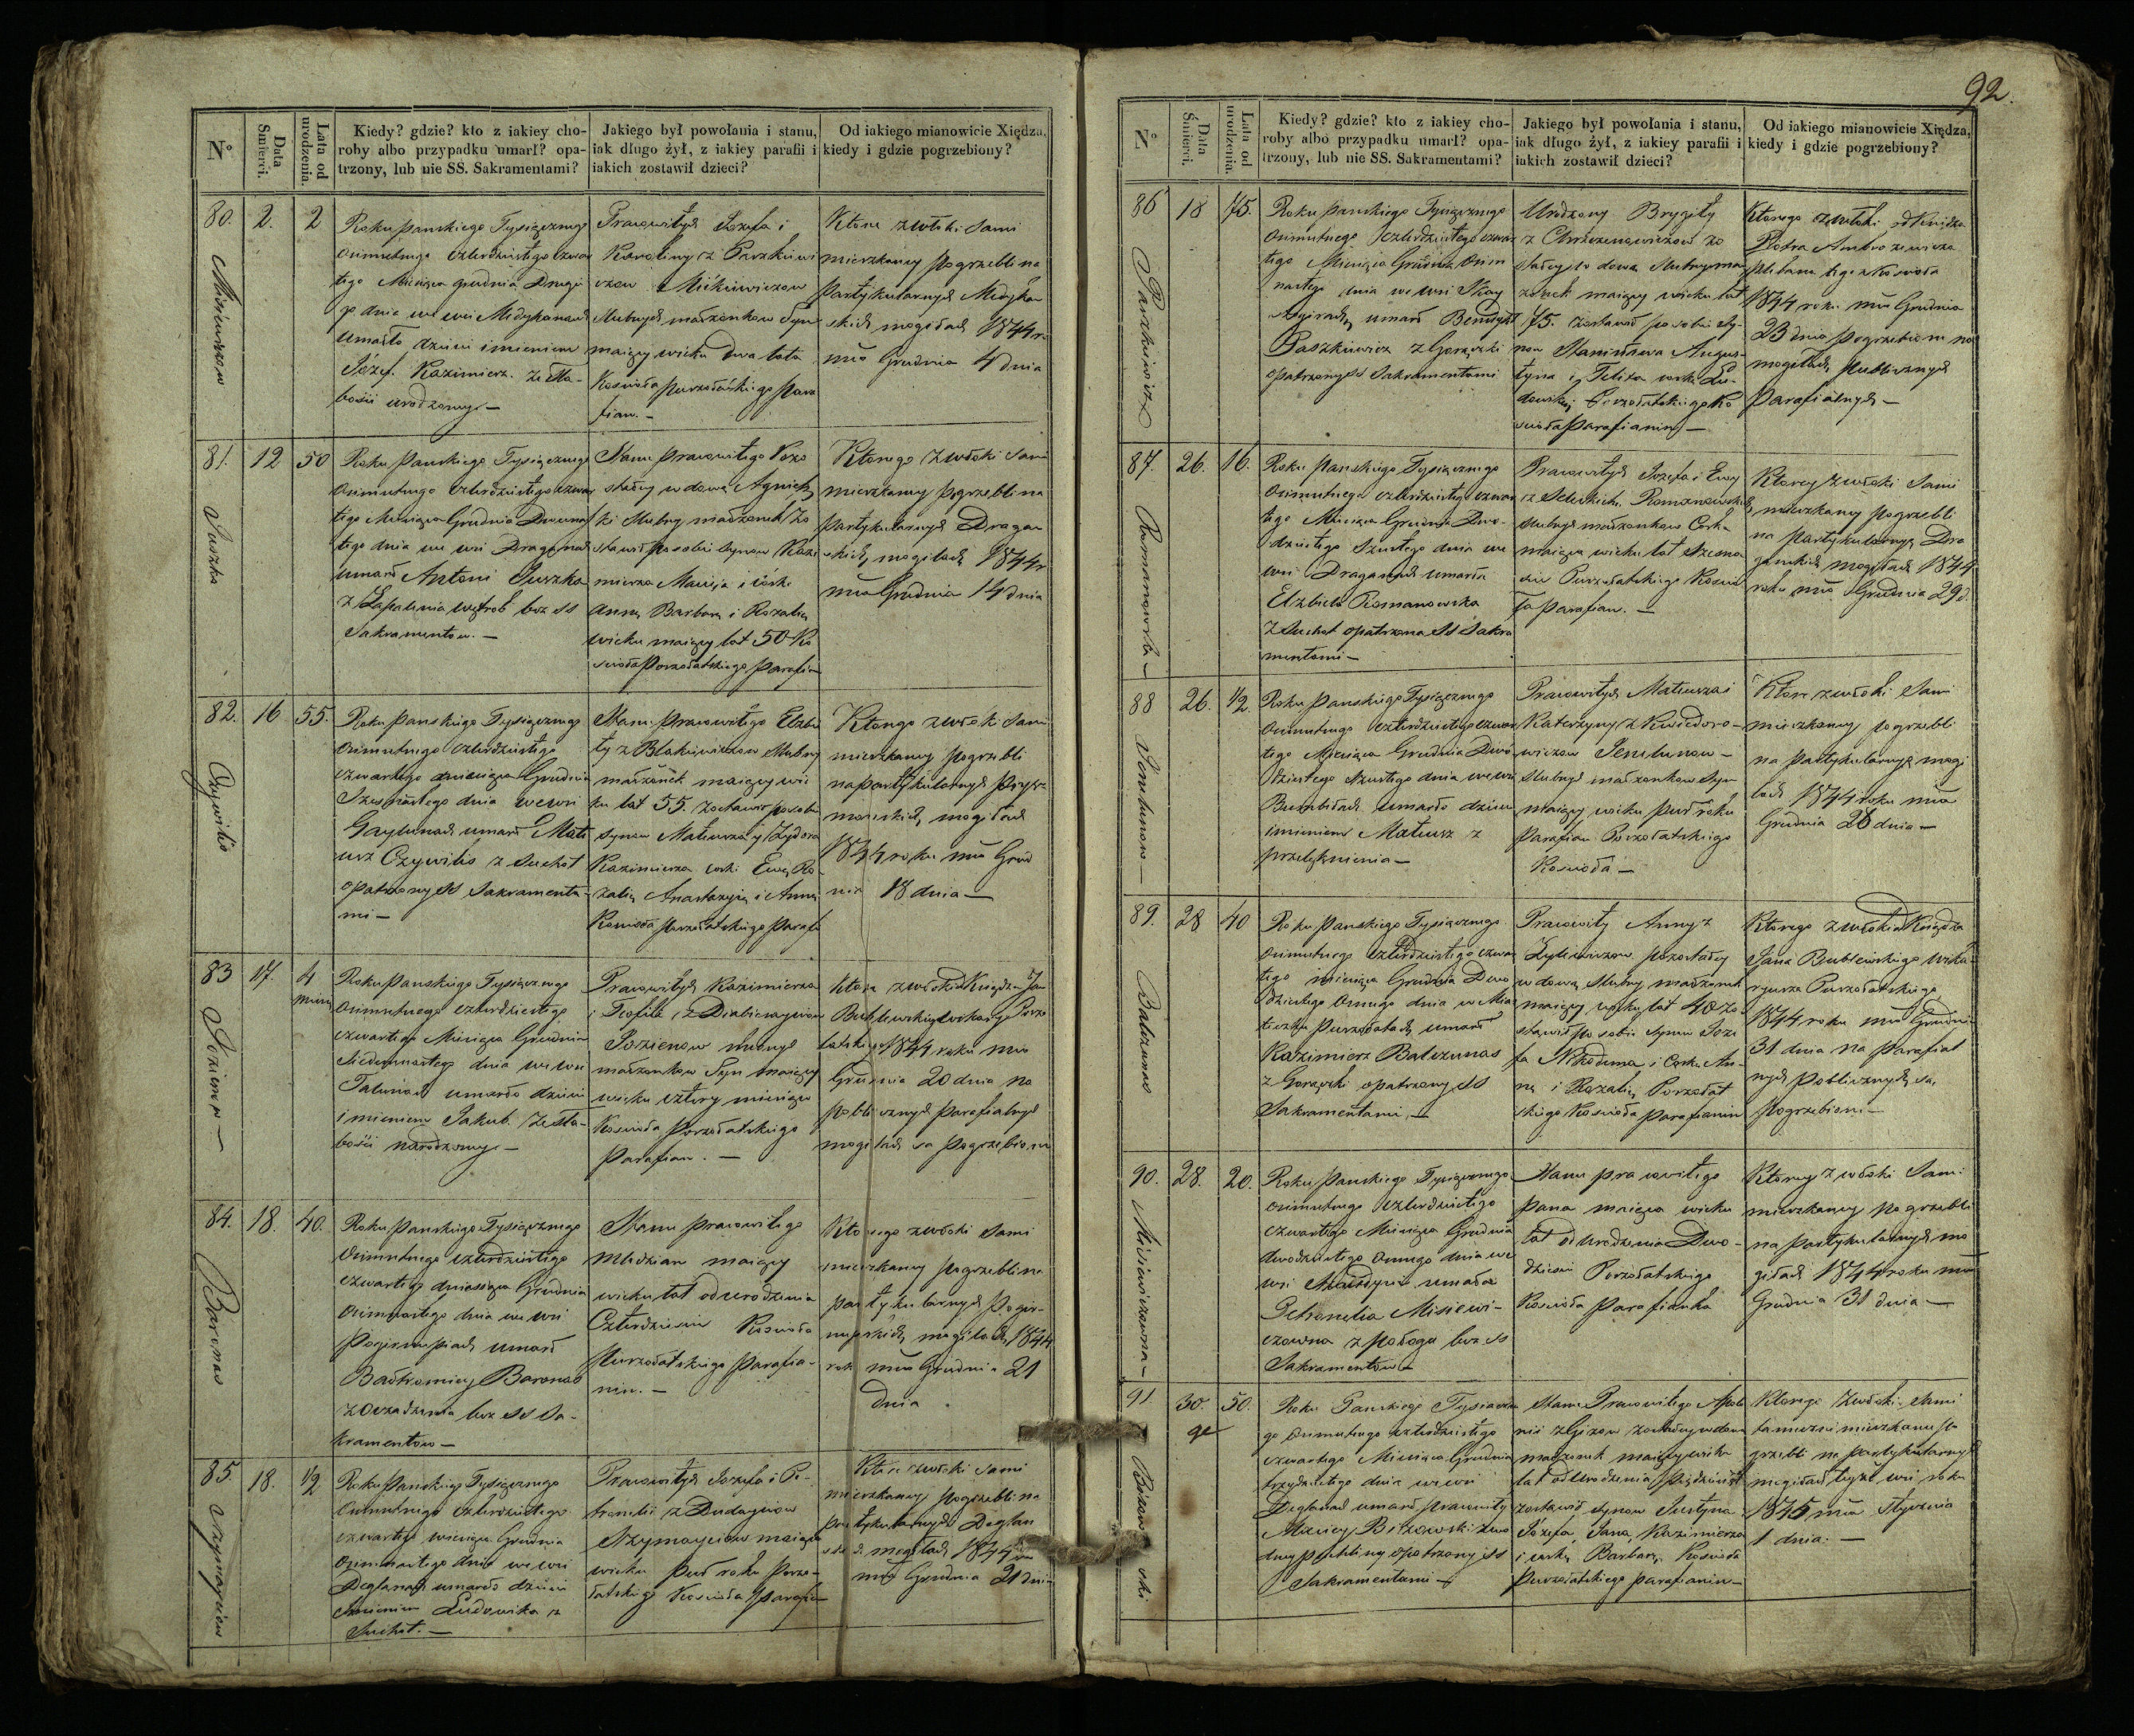 92.
N°
Data Śmierci.
Lata od urodzenia.
Kiedy? gdzie? kto z iakiey cho-
roby albo przypadku umarł? opa-
trzony, lub nie SS. Sakramentami?
Jakiego był powołania i stanu,
iak długo żył, z iakiey parafii i
iakich zostawił dzieci?
Od iakiego mianowicie Xiędza,
kiedy i gdzie pogrzebiony?
80.
2.
2
Roku pańskiego Tysiącznego
Osimsetnego czterdziestego czwar
tego Miesiąca Grudnia Drugi
go dnia we wsi
umarło dziecie imieniem
Józef Kazimierz ze sła-
bości urodzonego —
Prawowitych Jozefa i
Karoliny z
Ślubnych małżonkow Syn
maiący wieku dwa lata
Kościoła
fian. —
Ktore zwłoki Sami
mieszkancy pogrzebli na
partykularnych
skich mogiłach 1844 r
mca Grudnia 4 dnia
81.
12
50
Juszka
Roku Pańskiego Tysiącznego
Osimsetnego czterdziestego czwar
tego Miesiąca Grudnia Dwunas
tego dnia we wsi Draganach
umarł Antoni Juszka
z Zapalenia wątrob bez SS
Sakramentow. —
Stanu prawowitego Pozo
stałey wdowy Agniesz
ki Slubny małżonek Zo
stawił po sobie Synow Kazi
mierza Macieja i córki
Annę Barbarę i Rozalię
wieku maiący lat 50 Ko
scioła Porzołatskiego Parafian
Ktorego Zwłoki Sami
mieszkancy pogrzebli na
partykularnych Dragan
skich mogiłach 1844 r
mca Grudnia 14 dnia
82.
16
55.
Roku Pańskiego Tysiącznego
Osimsetnego czterdziestego
czwartego miesiąca Grudnia
Szesnastego dnia we wsi
umarł Mate
usz Czywilis z Suchot
opatrzony SS Sakramenta-
mi —
Stanu prawowitego Elżbie
ty z Ślubny
małżonek maiący wie
ku lat 55. zostawił po sobie
synow Mateusza Izydora
Kazimierza corki Ewę Ro-
zalię Anastazyię i Annę
Koscioła Porzołatskiego Parafi
Ktorego zwłoki Sami
mieszkancy pogrzebli
na partykularnych
mogiłach
1844 roku mca Grud
nia 18 dnia —
83
17.
4
Roku Pańskiego Tysiącznego
Osimsetnego czterdziestego
czwartego Miesiąca Grudnia
Siedemnastego dnia we wsi
umarło dziecie
imieniem Jakub ze sła-
bości narodzonego —
Prawowitych Kazimierza
i Teofili z
slubnych
małżonkow Syn maiący
wieku cztery miesiące
Koscioła Porzołatskiego
Parafian. —
Ktore zwłoki Księdza Jan
Bublewskiego wikarego Porzo
łatskiego 1844 roku mca
Grudnia 20 dnia na
publicznych Parafialnych
mogiłach są Pogrzebione
84.
18.
40.
Baronas
Roku Pańskiego Tysiącznego
Osimsetnego czterdziestego
czwartego miesiąca Grudnia
Osimnastego dnia we wsi
umarł
Bałtromiey Baronas
bez SS Sa-
kramentow —
Stanu prawowitego
Młodzian maiący
wieku lat od urodzenia
Czterdzieści Koscioła
Porzołatskiego Parafia-
nin. —
Ktorego zwłoki Sami
mieszkancy pogrzebli na
partykularnych
mogiłach 1844
rok mca Grudnia 21
dnia
85.
18.
1/2
Roku Pańskiego Tysiącznego
Osimsetnego czterdziestego
czwartego miesiąca Grudnia
Osimnastego dnia we wsi
Deglanach umarło dziecie
imieniem Ludowika z
Suchot. —
Prawowitych Jozefa i Pe-
tronelii z
maiąca
wieku puł roku Porzo-
łatskiego Koscioła Parafian
Ktore zwłoki Sami
mieszkancy Pogrzebli na
partykularnych Deglan
skich mogiłach 1844
mca Grudnia 21 dnia
86
18
75.
Paszkiewicz
Roku Pańskiego Tysiącznego
Osimsetnego czterdziestego czwar
tego Miesiąca Grudnia Osim
nastego dnia we wsi
umarł Benedykt
Paszkiewicz z Gorączki
opatrzony SS Sakramentami
Urodzony Brygity
z Chrzczonowiczow zo
stałey wdowy Slubny mał
żonek maiący wieku lat
75. zostawił po sobie Sy-
now Stanisława Augus-
tyna i Felixa corkę Lu-
dowikę Porzołatskiego Ko
scioła Parafianin —
Ktorego zwłoki od Księdza
Piotra Ambrozewicza
plebana tego Koscioła
1844 roku mca Grudnia
23 dnia pogrzebione na
mogiłach publicznych
Parafialnych —
87.
26.
16.
Romanowska —
Roku Pańskiego Tysiącznego
Osimsetnego czterdziestego czwar
tego Miesiąca Grudnia Dwu-
dziestego Szostego dnia we
wsi Draganach umarła
Elżbieta Romanowska
z Suchot opatrzona SS Sakra
mentami —
Prawowitych Jozefa i Ewy
z Romanowskich
slubnych małżonkow Corka
maiąca wieku lat Szesna
scie Porzołatskiego Koscio
ła Parafian. —
Ktorey zwłoki Sami
mieszkancy pogrzebli
na partykularnych Dra
ganskich mogiłach 1844
roku mca Grudnia 29 d.
88
26.
1/2
Roku Pańskiego Tysiącznego
Osimsetnego czterdziestego czwar
tego Miesiąca Grudnia Dwu
dziestego Szostego dnia we wsi
umarło dziecie
imieniem Mateusz z
przelęknienia —
Prawowitych Mateusza i
Katerzyny z
slubnych małżonkow Syn
maiący wieku puł roku
Parafian Porzołatskiego
Koscioła —
Ktore zwłoki Sami
mieszkancy pogrzebli
na partykularnych mogi
łach 1844 roku mca
Grudnia 28 dnia —
89.
28
40
Balczunas
Roku Pańskiego Tysiącznego
Osimsetnego czterdziestego czwar
tego miesiąca Grudnia Dwu
dziestego Osmego dnia w Mias
teczku Porzołatach umarł
Kazimierz Balczunas
z Gorączki opatrzony SS
Sakramentami —
Prawowity Anny z
pozostałey
wdowy Slubny małżonek
maiący wieku lat 40 zo-
stawił po sobie Synow Joze
fa Nikodema i Corki An-
nę i Rozalię Porzołat
skiego Koscioła Parafianin
Ktorego zwłoki od Księdza
Jana Bublewskiego wika-
ryusza Porzołatskiego
1844 roku mca Grudnia
31 dnia na parafial
nych Publicznych są
Pogrzebione —
90.
28.
20.
Misiewiczowna —
Roku Pańskiego Tysiącznego
Osimsetnego czterdziestego
czwartego Miesiąca Grudnia
dwudziestego Osmego dnia we
wsi umarła
Petronelia Misiewi-
czowna z Połogu bez SS
Sakramentow —
Stanu prawowitego
panna maiąca wieku
lat od Urodzenia Dwu-
dziescie Porzołatskiego
Koscioła Parafianka
Ktorey zwłoki Sami
mieszkancy pogrzebli
na partykularnych mo
giłach 1844 roku mca
Grudnia 31 dnia —
91
30
50.
Roku Pańskiego Tysiączne
go Osimsetnego czterdziestego
czwartego Miesiąca Grudnia
trzydziestego dnia we wsi
Deglanach umarł prawowity
Maciey
puchliny opatrzony SS
Sakramentami —
Stanu Prawowitego Apolo
nii
małżonek maiący wieku
lat od Urodzenia Pięćdziesiąt
zostawił synow Justyna
Józefa Jana Kazimierza
i corkę Barbarę Koscioła
Porzołatskiego parafianin —
Ktorego Zwłoki Sami
mieszkancy po
grzebli na partykularnych
mogiłach teyże wsi roku
1845 mca Stycznia
1 dnia. —